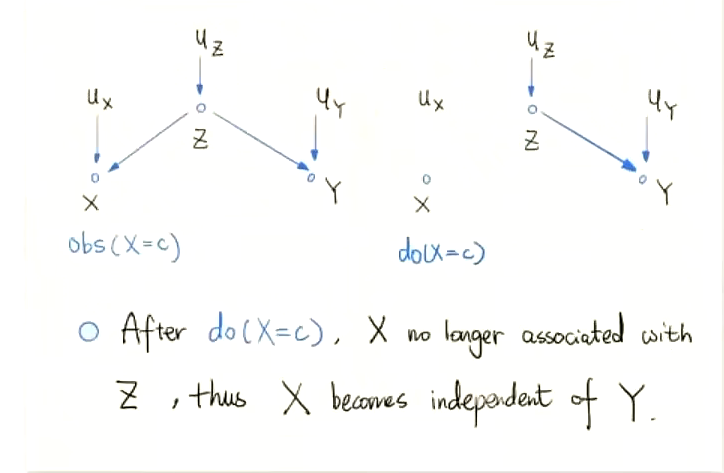 U_Z U_Z
U_X U_Y U_X U_Y
Z Z
X Y X Y
obs(X=c) do(X=c)
After do(X=c), X no longer associated with
Z, thus X becomes independent of Y.